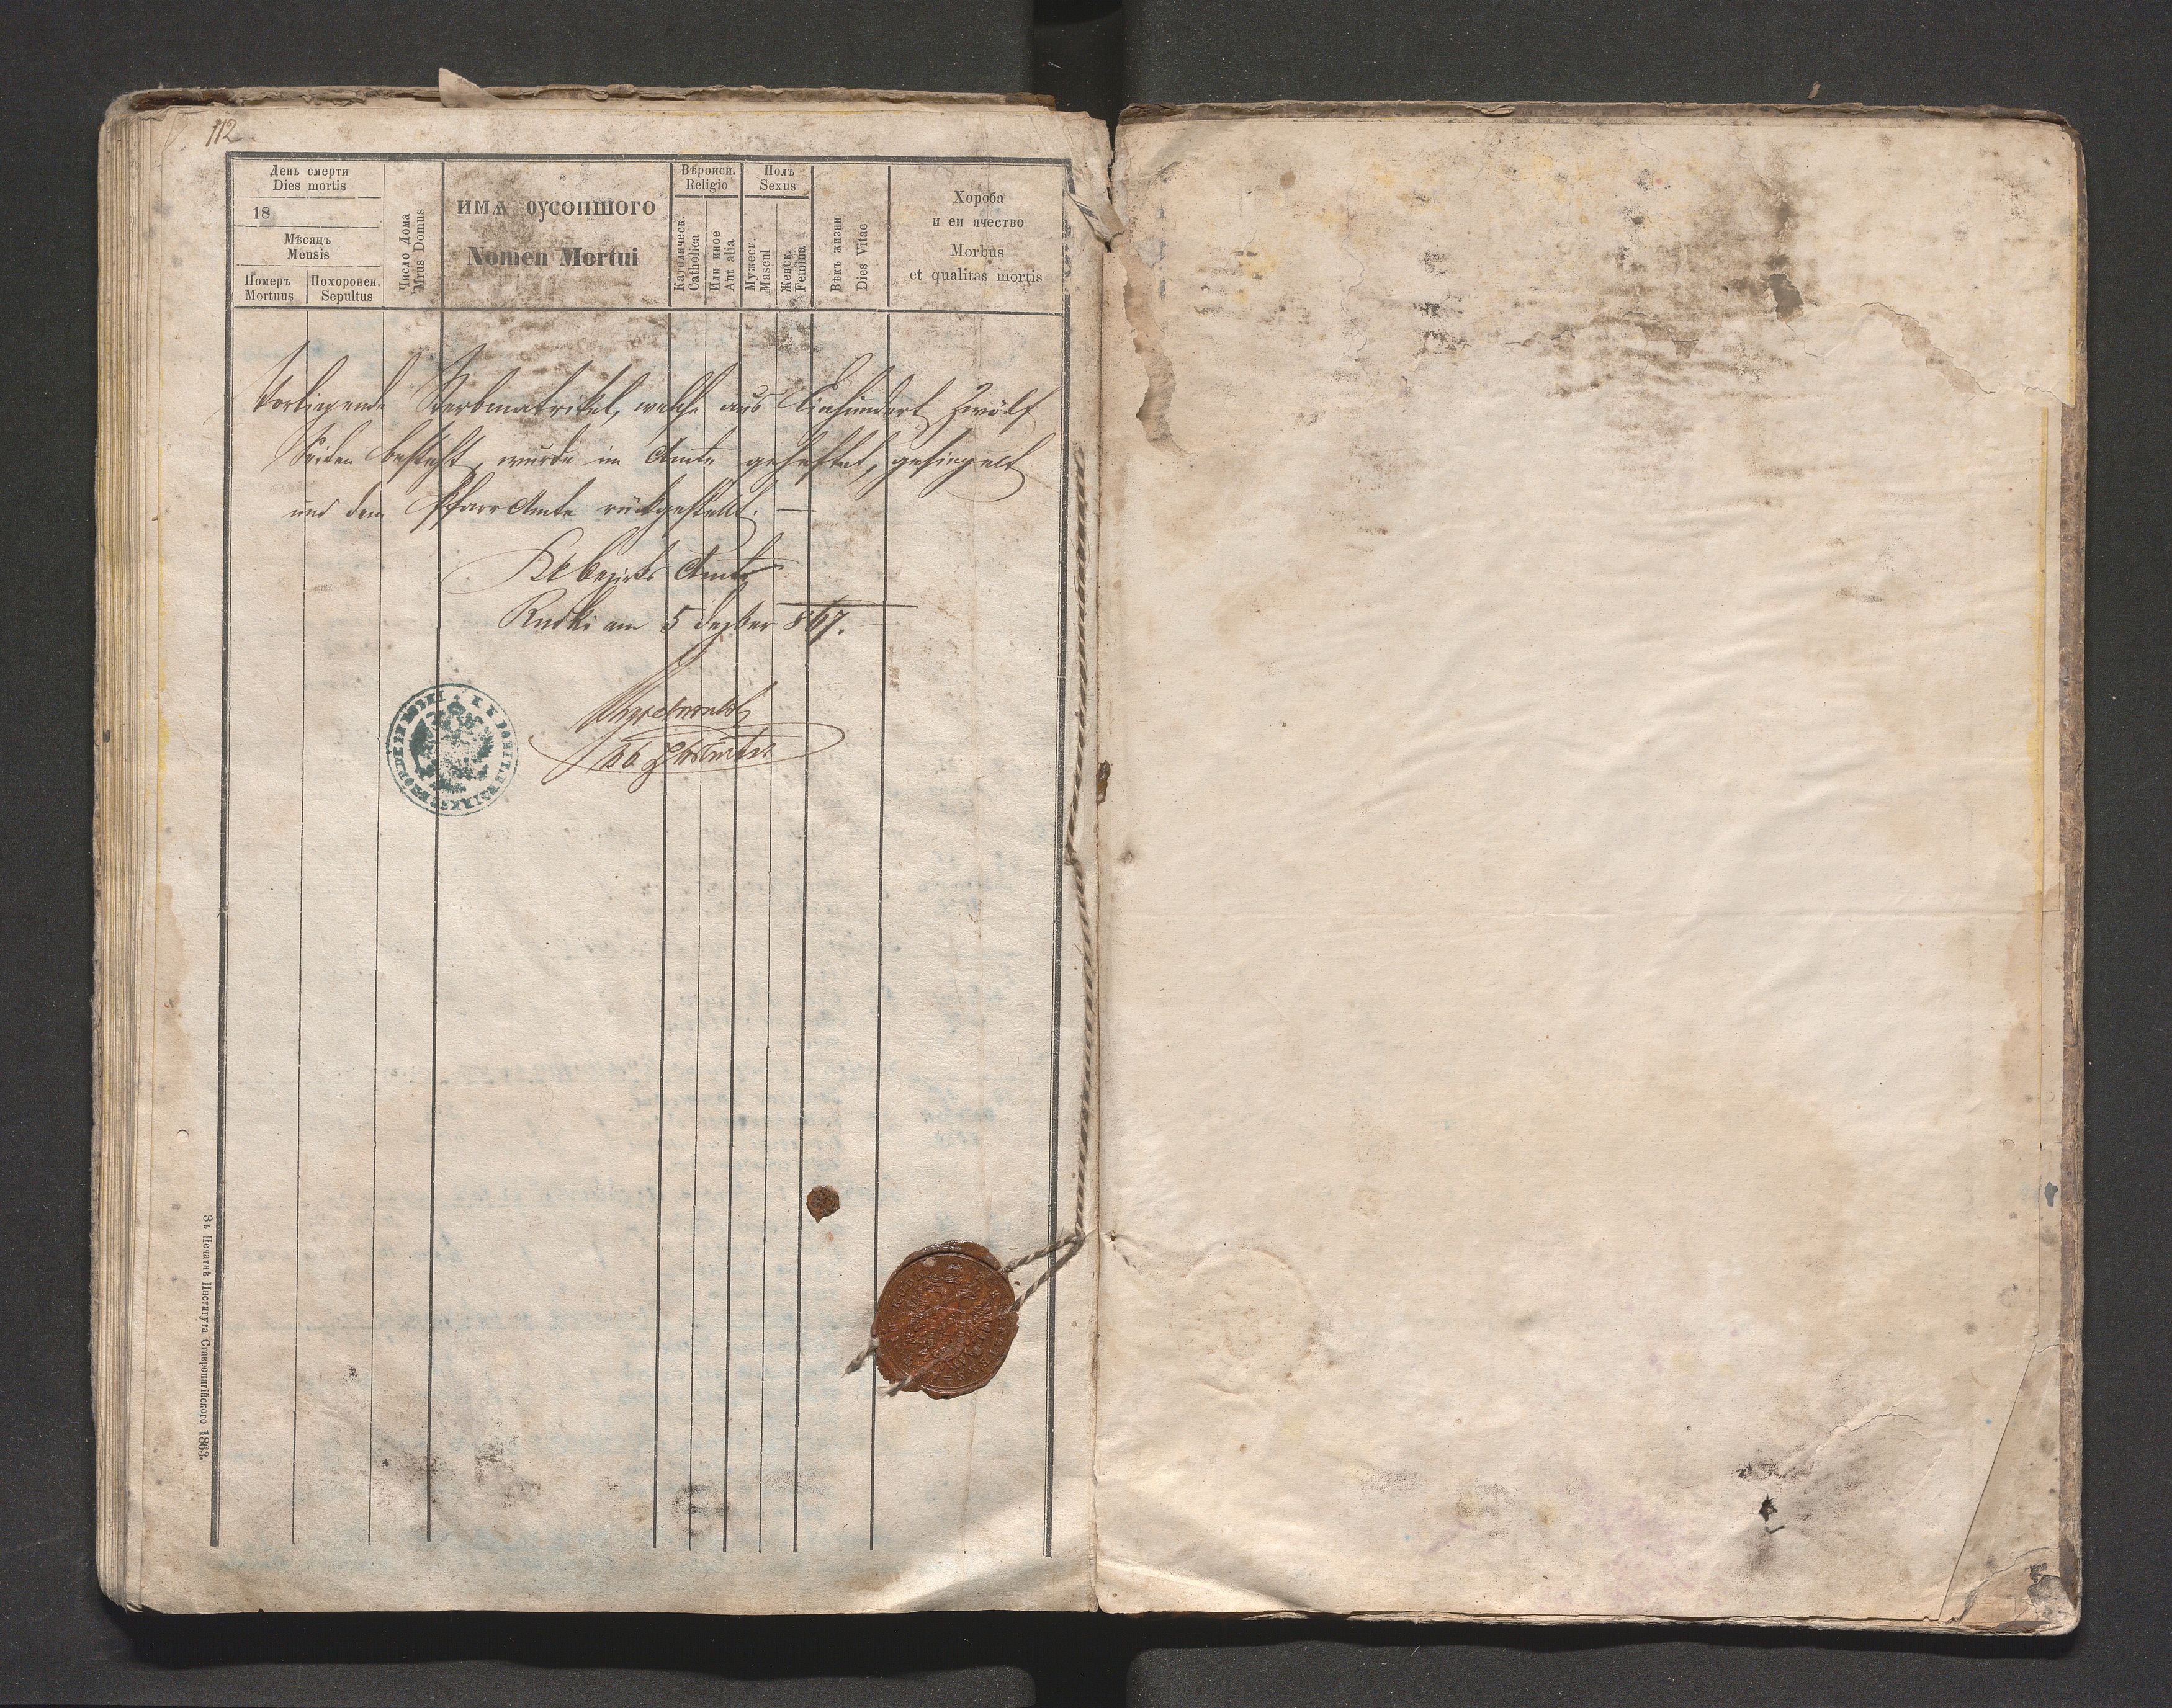 112
День смерти
Dies mortis
18
Мѣсяцъ
Mensis
Померъ
Mortuus
Похоронен.
Sepultus
Число Дома
Nrus Domus
ИМѦ ОУСОПШОГО
Nomen Mortui
Вѣроисп.
Religio
Католическ.
Catholica
Или иное
Aut alia
Полъ
Sexus
Мужеск.
Mascul
Женск.
Femina
Вѣкъ жизни
Dies Vitae
Хороба
и еи ячество
Morbus
et qualitas mortis
Vorliegende Sterbmatrikel, welche aus Einhundert Zwölf
Seiten besteht, wurde im Amte geheftet, gesiegelt
und dem Pfarr Amte rückgestellt. —
Kk Bezirks Amt
Rudki am 5 Dezber 867.
Зъ Печатнѣ Института Ставропигійского 1863.